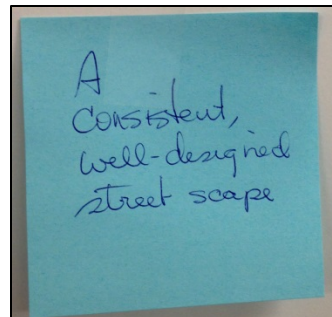 A
Consistent,
well-designed
street scape